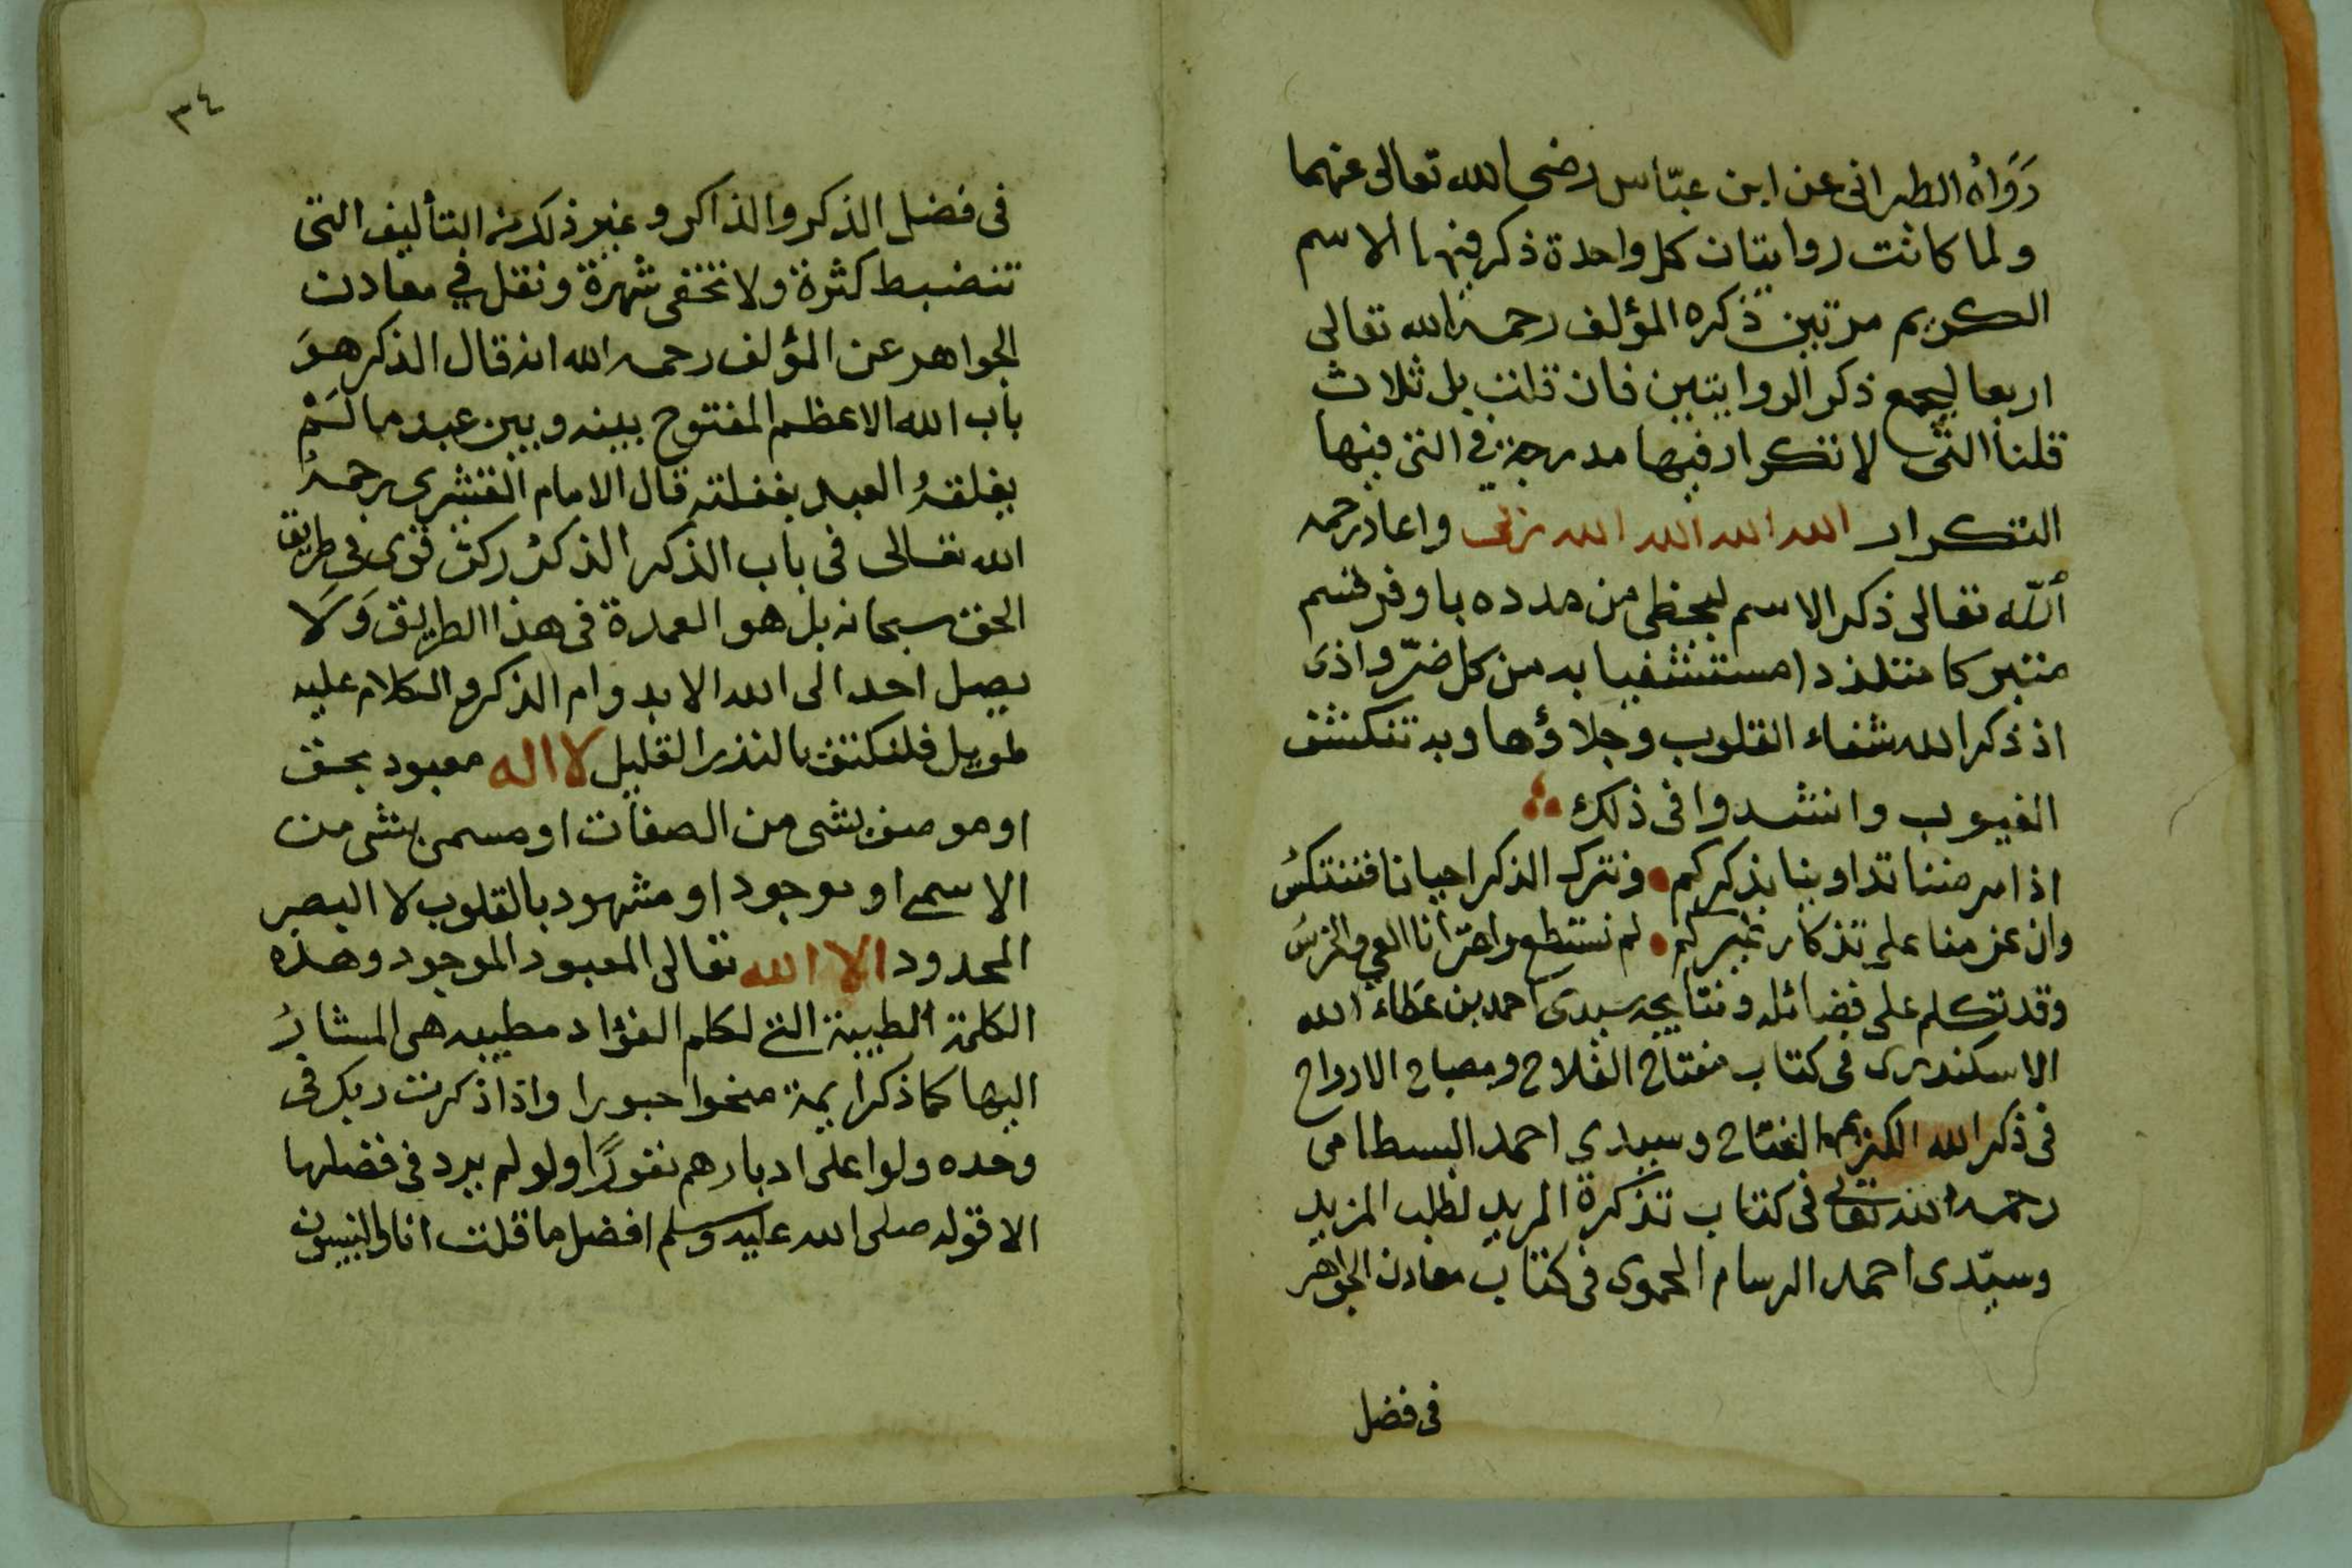 رَوَاهُ الطبرانى عن ابن عبّاس رضى الله تعالى عنهما
ولما كانت روايتان كل واحدة ذكر فيها الاسم
الكريم مرتين ذكره المؤلف رحمه الله تعالى
اربعا ليجمع ذكر الروايتين فان قلت بل ثلاث
قلنا التى لا تكرار فيها مدرجة فى التى فيها
التكرار الله الله الله الله ربى واعاد رحمه
الله تعالى ذكر الاسم ليحظى من مدده باوفر قسم
متبركا متلذذا مستشفيا به من كل ضرّ واذى
اذ ذكر الله شفاء القلوب وجلاؤها وبه تنكشف
الغيوب وانشدوا فى ذلك
اذا مرضنا تداوينا بذكركم ونترك الذكر احيانا فننتكسُ
وان عزمنا على تذكار غيركم لم نستطع واعترانا العي والخرسُ
وقد تكلم على فضائله ونتايجه سيدى احمد بن عطاء الله
الاسكندرى فى كتاب مفتاح الفلاح ومصباح الارواح
فى ذكر الله الكريم الفتاح وسيدي احمد البسطامى
رحمه الله تعالى فى كتاب تذكرة المريد لطلب المزيد
وسيّدى احمد الرسام الحموى فى كتاب معادن الجواهر
فى فضل
٣٤
فى فضل الذكر والذاكر وغير ذلك من التأليف التى
تنضبط كثرة ولا تخفى شهرة ونقل في معادن
الجواهر عن المؤلف رحمه الله انه قال الذكر هوَ
باب الله الاعظم المفتوح بينه وبين عبده ما لَمْ
يغلقهُ العبد بغفلته قال الامام القشيرى رحمهُ
الله تعالى فى باب الذكر الذكرُ ركن قوى فى طريق
الحق سبحانه بل هو العمدة فى هذا الطريق وَلَا
يصل احد الى الله الا بدوام الذكر والكلام عليه
طويل فلنكتف بالنذر القليل لا اله معبود بحق
او موصف بشى من الصفات او مسمى بشى من
الاسمى او موجود او مشهود بالقلوب لا البصر
المحدود الا الله تعالى المعبود الموجود وهذه
الكلمة الطيبة التى لكلم الفؤاد مطيبه هى المشارُ
اليها كما ذكر ايمة منحوا حبورا واذا ذكرت ربك فى
وحده ولوا على ادبارهم نفورًا ولو لم يرد فى فضلها
الا قوله صلى الله عليه وسلم افضل ما قلت انا والنبيون